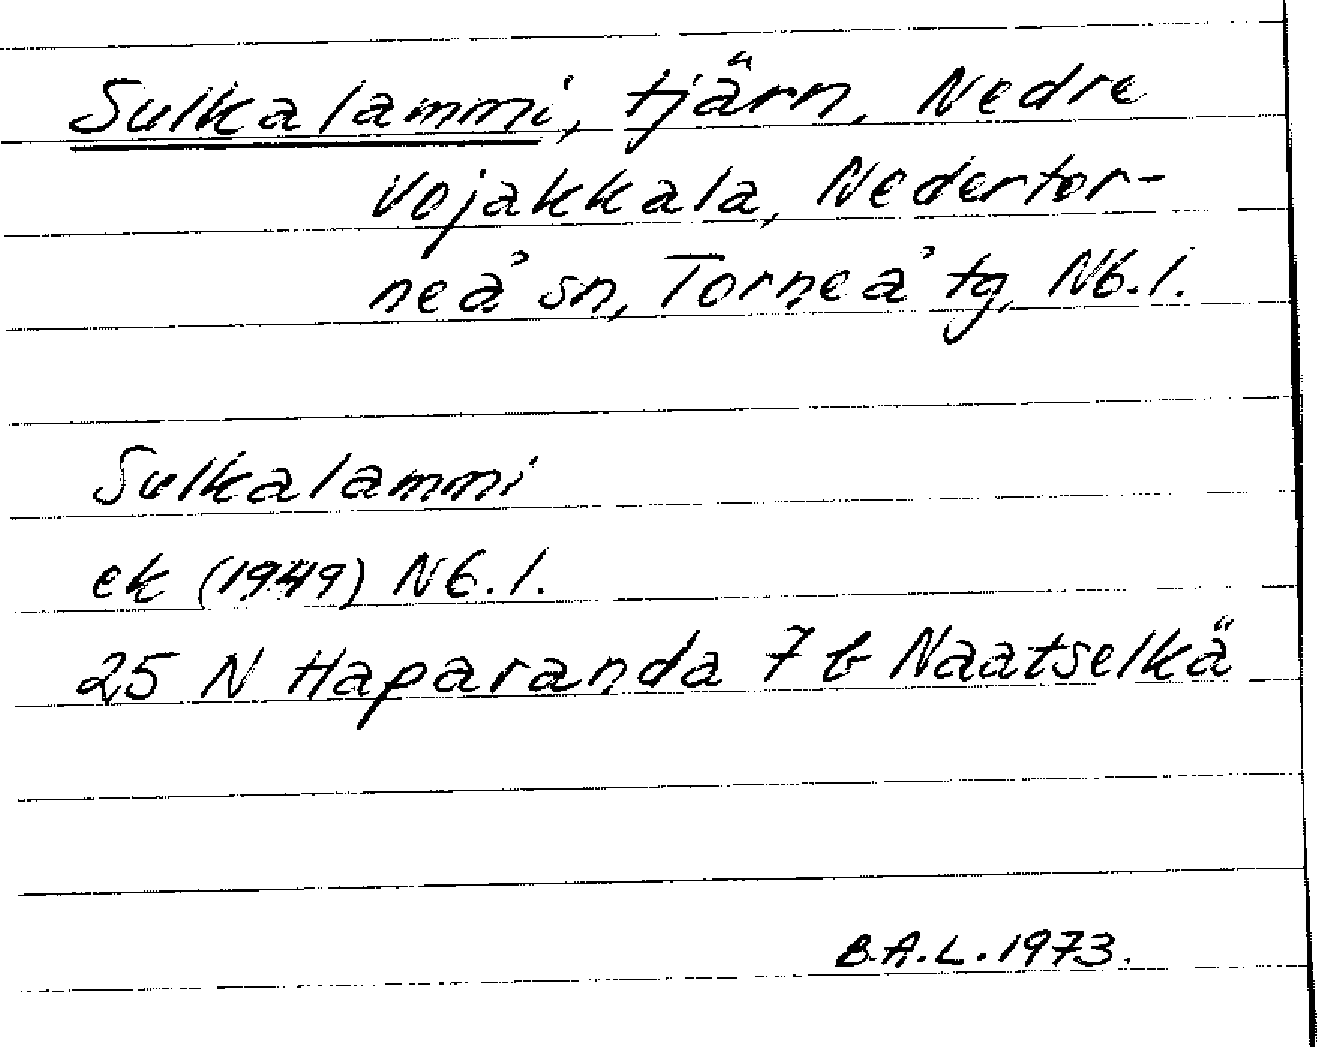 Sulkalammi, tjärn, Nedre
Vojakkala, Nedertor-
neå sn, Torneå tg, Nb.l.
Sulkalammi
ek (1949) Nb.l.
25 N Haparanda 7 b Naatselkä
B.A.L. 1973.